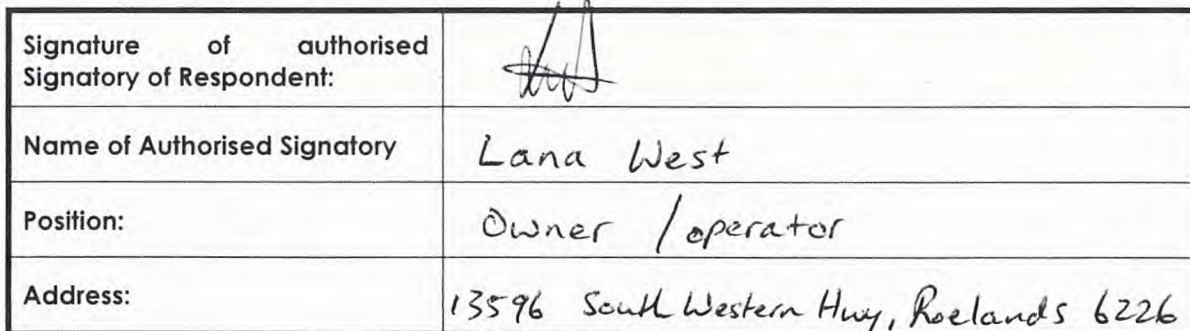 Signature of authorised
Signatory of Respondent:
Name of Authorised Signatory
Lana West
Position:
Owner / operator
Address:
13596 South Western Hwy, Roelands 6226